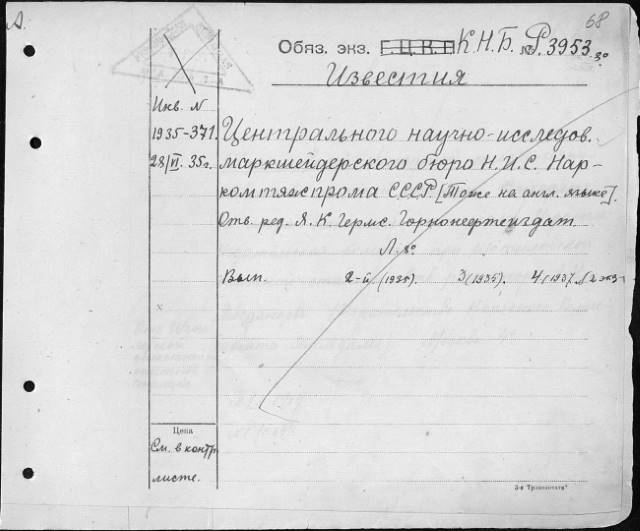 68
Д.
Обяз. экз. Г.Ц.К.П К.Н.Б. № Р.3953 3°
Известия
Инв. N
1935-371.
28/VI. 35г.
Центрального научно-исследов.
маркшейдерского бюро Н.И.С. Нар-
комтяжпрома СССР. [Тоже на англ. языке].
Отв. ред. Я. К. Гермс. Горгеонефтеиздат
Л. 8°
Вып. 2-й (1935). 3 (1935). 4 (1937.) (2 экз.
Цена
См. в контр.
листе.
3-я "Транспечать"